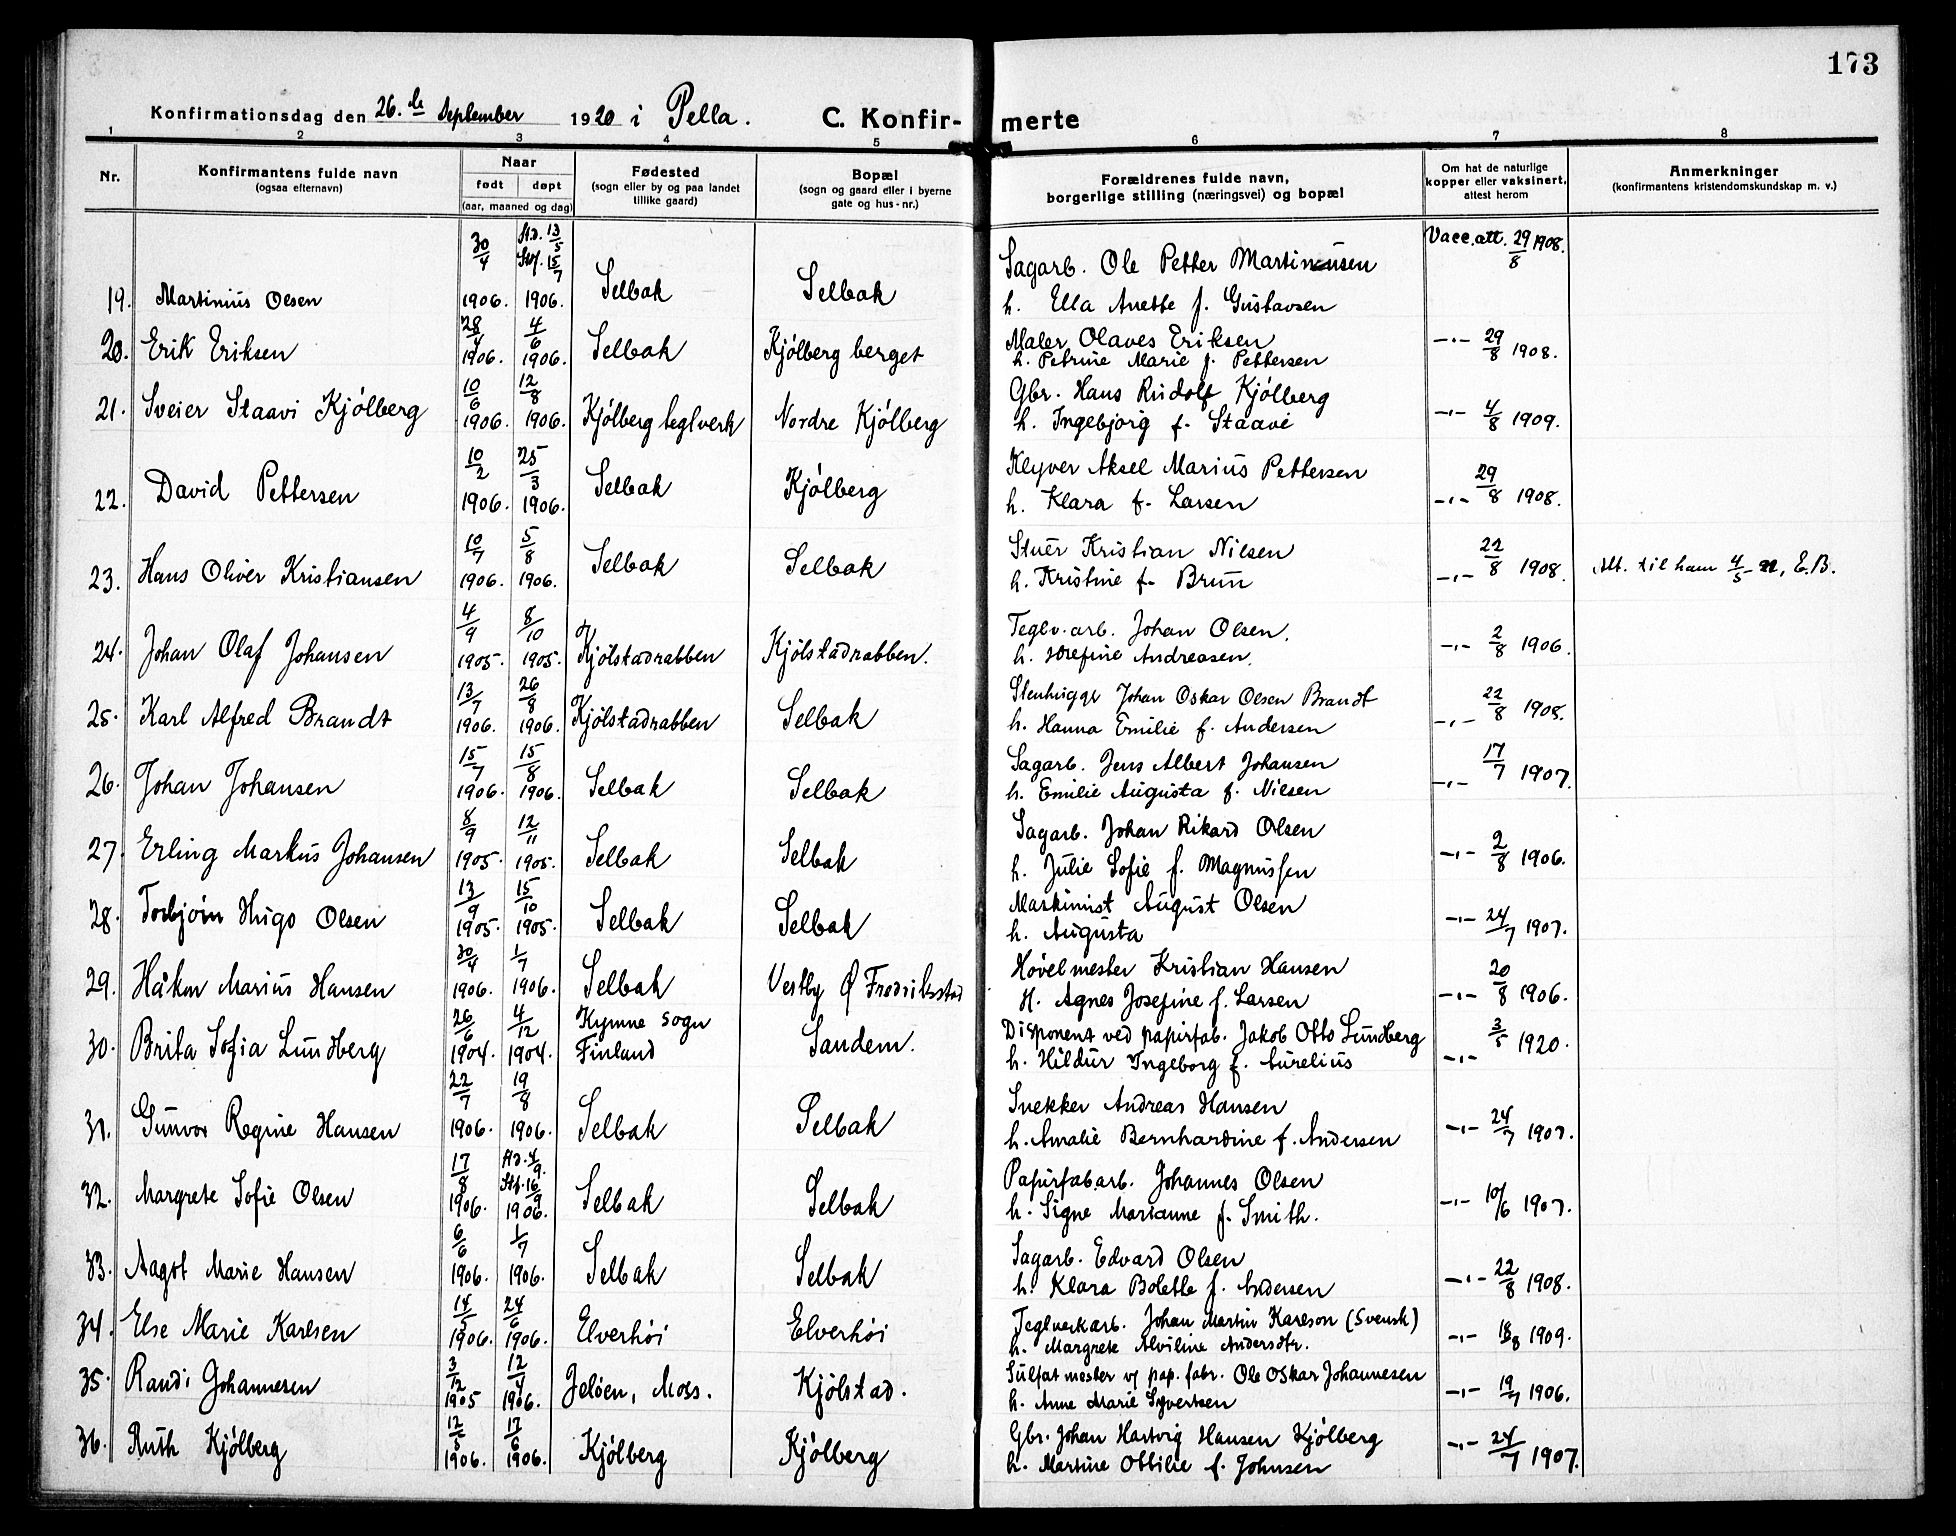 173
Konfirmationsdag den 26. de September 1920 i Pella. C. Konfir- merte
1 2 3 4 5 6 7 8
Nr. Konfirmantens fulde navn (ogsaa efternavn) Naar født døpt (aar, maaned og dag) Fødested (sogn eller by og paa landet tillike gaard) Bopæl (sogn og gaard eller i byerne gate og hus-nr.) Forældrenes fulde navn, borgerlige stilling (næringsvei) og bopæl Om hat de naturlige kopper eller vaksinert, attest herom Anmerkninger (konfirmantens kristendomskundskap m. v.)
19. Martinius Olsen 30/4 1906. 13/5 15/7 1906. Selbak Selbak Sagarb. Ole Petter Martinusen Vacc. att. 29/8 1908.
h. Ella Anette f. Gustavsen
20. Erik Eriksen 28/4 1906. 4/6 1906. Selbak Kjølberg berget Maler Olaves Eriksen -"- 29/8 1908.
h. Petrine Marie f. Pettersen
21. Sveier Staavi Kjølberg 10/6 1906. 12/8 1906. Kjølberg teglverk Nordre Kjølberg Gbr. Hans Rudolf Kjølberg -"- 4/8 1909.
h. Ingebjørg f. Staavi
22. David Pettersen 10/2 1906. 25/3 1906. Selbak Kjølberg Klyver Aksel Marius Pettersen -"- 29/8 1908.
h. Klara f. Larsen
23. Hans Oliver Kristiansen 10/7 1906. 5/8 1906. Selbak Selbak Stuer Kristian Nilsen -"- 22/8 1908. Att. til ham 4/5 - 21, E.B.
h. Kristine f. Brun
24. Johan Olaf Johansen 4/9 1905. 8/10 1905. Kjølstadrabben Kjølstadrabben. Teglv. arb. Johan Olsen. -"- 2/8 1906.
h. Josefine Andreasen.
25. Karl Alfred Brandt 13/7 1906. 26/8 1906. Kjølstadrabben Selbak Stenhugger Johan Oskar Olsen Brandt -"- 22/8 1908.
h. Hanna Emilie f. Andersen
26. Johan Johansen 15/7 1906. 15/8 1906. Selbak Selbak Sagarb. Jens Albert Johansen -"- 17/7 1907.
h. Emilie Augusta f. Nilsen
27. Erling Markus Johansen 8/9 1905. 12/11 1905. Selbak Selbak Sagarb. Johan Rikard Olsen -"- 2/8 1906.
h. Julie Sofie f. Magnussen
28. Torbjørn Hugo Olsen 13/9 1905. 15/10 1905. Selbak Selbak Maskinist August Olsen -"- 24/7 1907.
h. Augusta
29. Håkon Marius Hansen 30/4 1906. 1/7 1906. Selbak Vestby Ø Fredrikstad Høvelmester Kristian Hansen -"- 20/8 1906.
H. Agnes Josefine f. Larsen
30. Brita Sofia Lundberg 26/6 1904. 4/12 1904. Kymne sogn Finland Sandem. Disponent ved papirfab. Jakob Otto Lundberg -"- 3/5 1920.
h. Hildur Ingeborg f. Aurelius
31. Gunvor Regine Hansen 22/7 1906. 19/8 1906. Selbak Selbak Snekker Andreas Hansen -"- 24/7 1907.
h. Amalie Bernhardine f. Andersen
32. Margrete Sofie Olsen 17/8 1906. 4/9. 16/9 1906. Selbak Selbak Papirfabarb. Johannes Olsen -"- 10/6 1907.
h. Signe Marianne f. Smith.
33. Aagot Marie Hansen 6/6 1906. 1/7 1906. Selbak Selbak Sagarb. Edvard Olsen -"- 22/8 1908.
h. Klara Bolette f. Andersen
34. Else Marie Karlsen 14/5 1906. 24/6 1906. Elverhøi Elverhøi Teglverkarb. Johan Martin Karlson (Svensk) -"- 18/8 1909.
h. Margrete Alviline Andersdtr.
35. Randi Johannesen 3/12 1905 12/4 1906. Jeløen, Moss. Kjølstad. Sulfatmester v/ pap. fabr. Ole Oskar Johannesen -"- 19/7 1906.
h. Anne Marie Syvertsen
36. Ruth Kjølberg 12/5 1906. 17/6 1906. Kjølberg Kjølberg Gbr. Johan Hartvig Hansen Kjølberg -"- 24/7 1907.
h. Martine Ottilie f. Johnsen